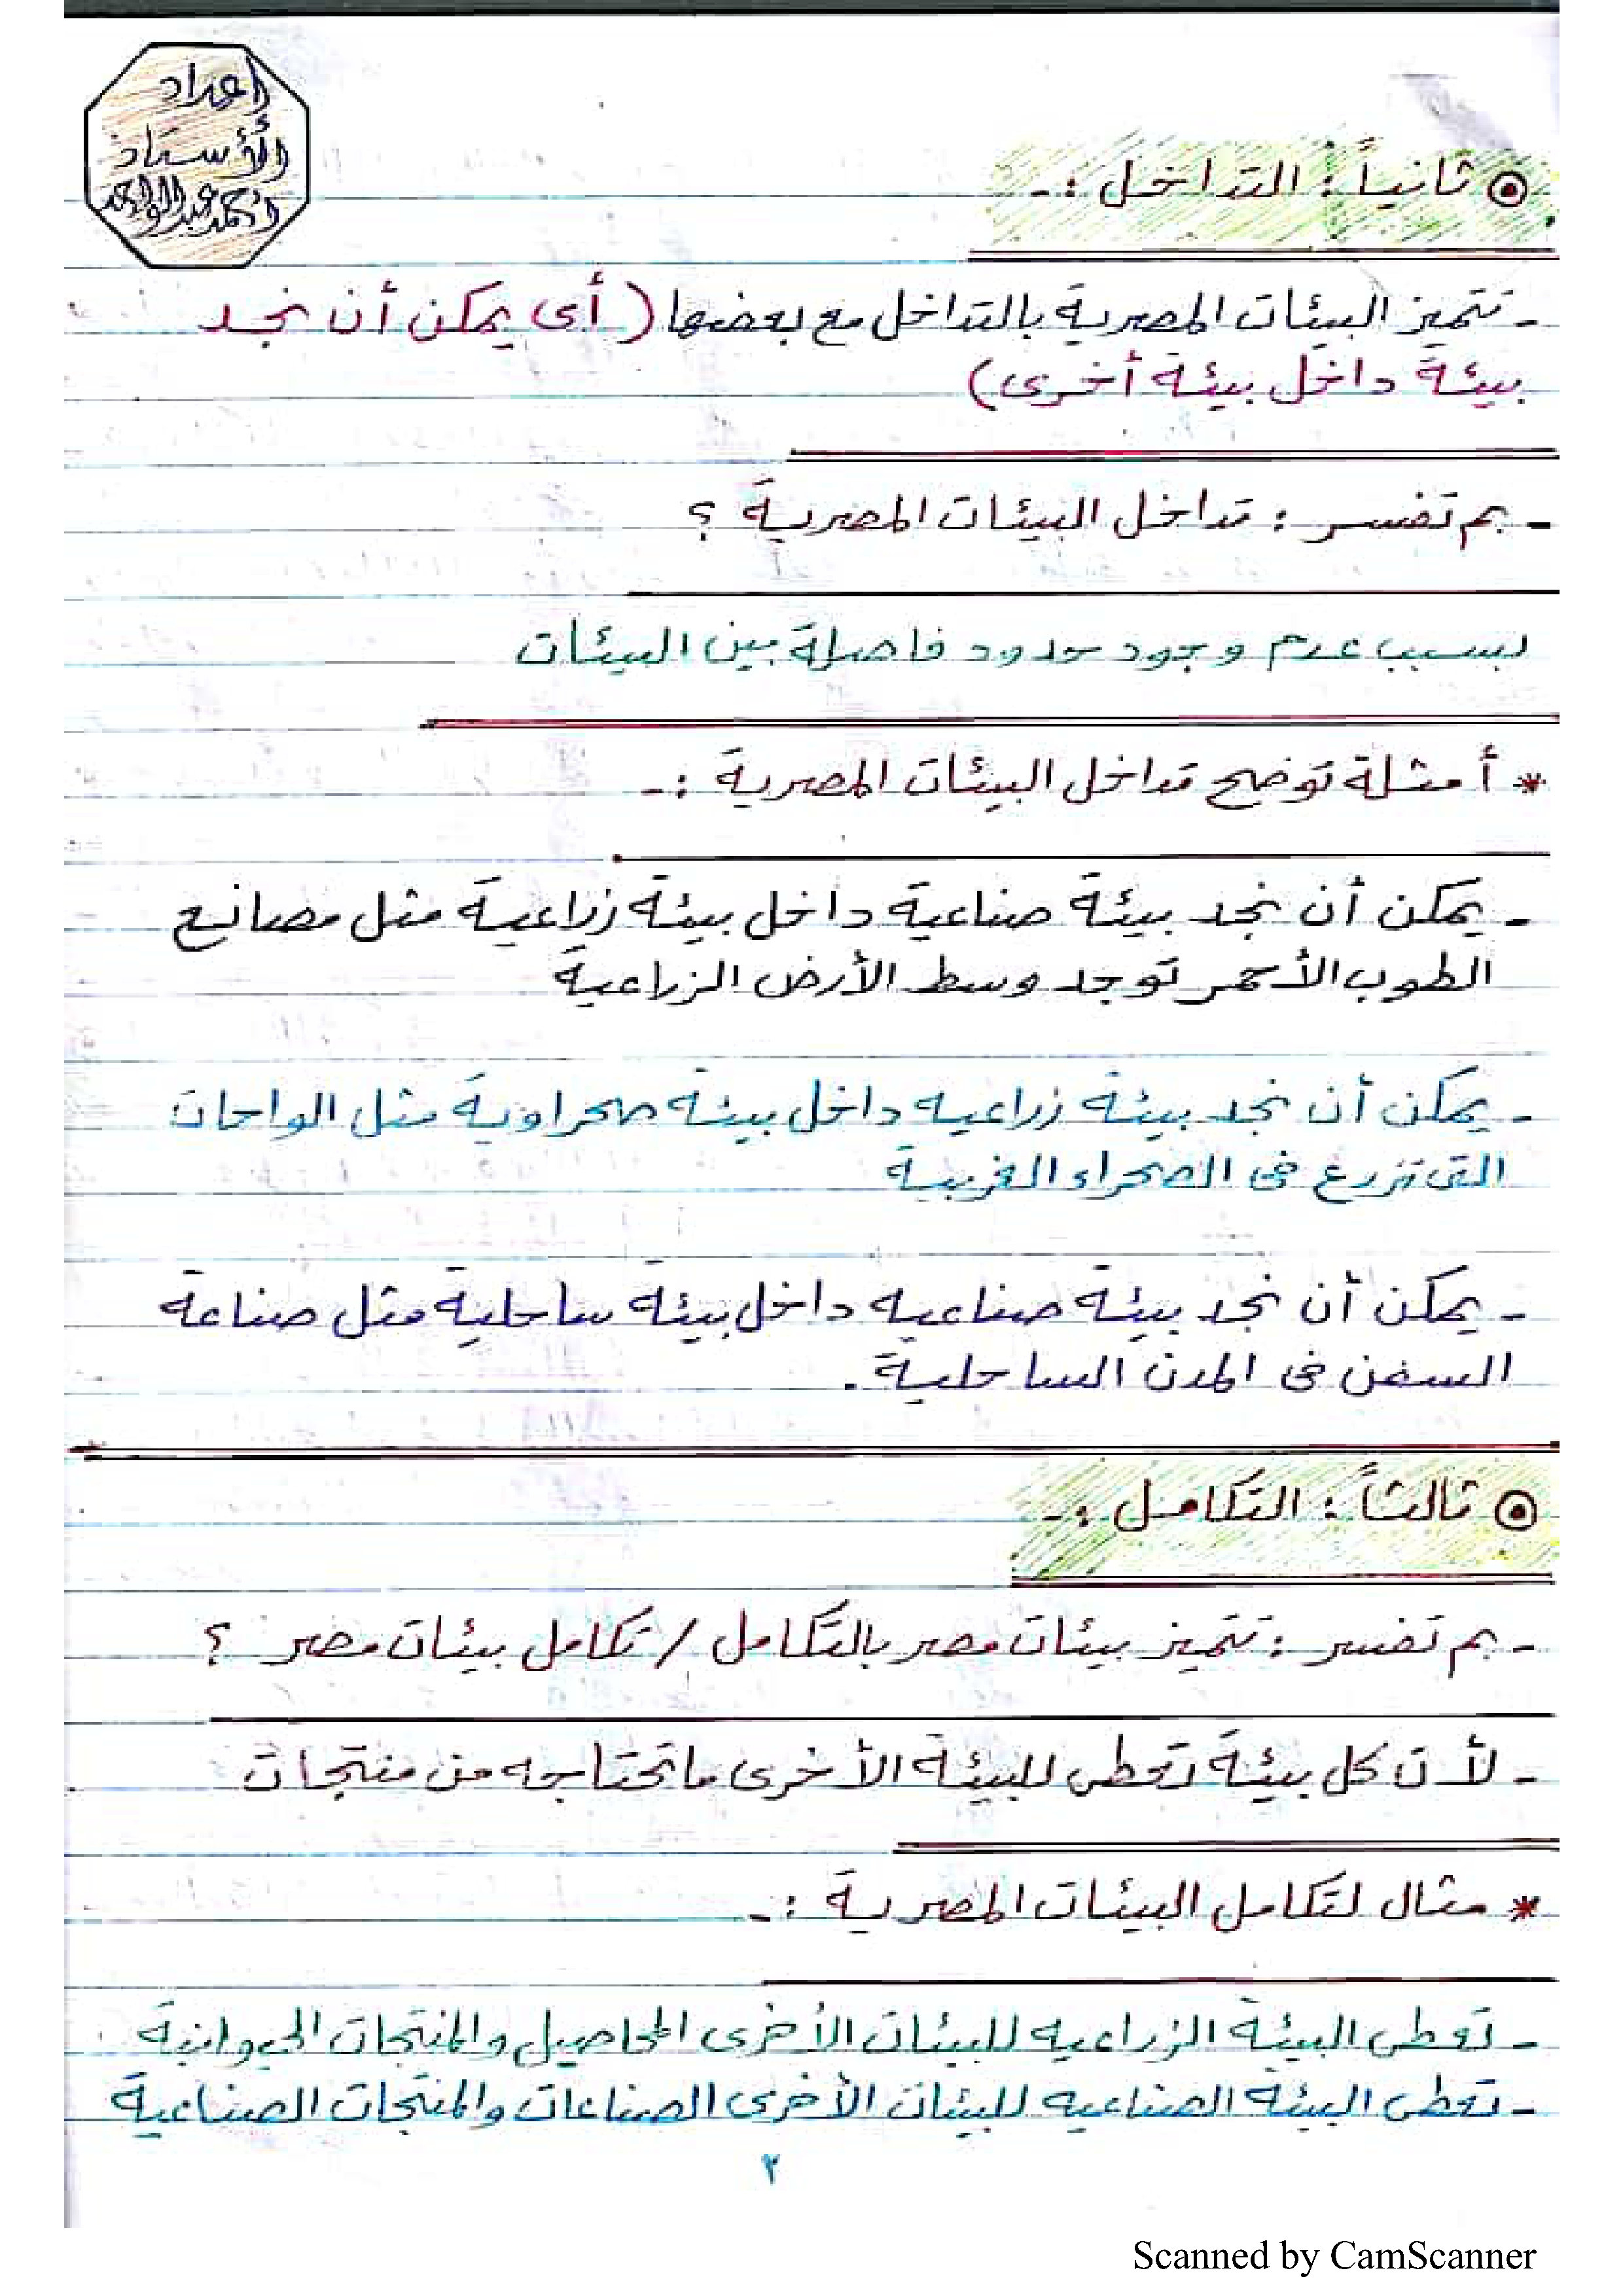 إعداد
الأستاذ
أحمد عبدالواحد
ثانياً : التداخل :-
- تتميز البيئات المصرية بالتداخل مع بعضها ( أى يمكن أن نجد
بيئة داخل بيئة أخرى)
- بم تفسر : تداخل البيئات المصرية ؟
بسبب عدم وجود حدود فاصلة بين البيئات
* أمثلة توضح تداخل البيئات المصرية :-
- يمكن أن نجد بيئة صناعية داخل بيئة زراعية مثل مصانع
الطوب الأحمر توجد وسط الأرض الزراعية
- يمكن أن نجد بيئة زراعيه داخل بيئة صحراوية مثل الواحات
التى تزرع فى الصحراء الغربية
- يمكن أن نجد بيئة صناعيه داخل بيئة ساحلية مثل صناعة
السفن فى المدن الساحلية .
ثالثاً : التكامل :-
- بم تفسر : تتميز بيئات مصر بالتكامل / تكامل بيئات مصر ؟
- لأن كل بيئة تعطى للبيئة الأخرى ما تحتاجه من منتجات
* مثال لتكامل البيئات المصرية :-
- تعطى البيئة الزراعيه للبيئات الأخرى المحاصيل والمنتجات الحيوانية
- تعطى البيئة الصناعيه للبيئات الأخرى الصناعات والمنتجات الصناعية
٢
Scanned by CamScanner